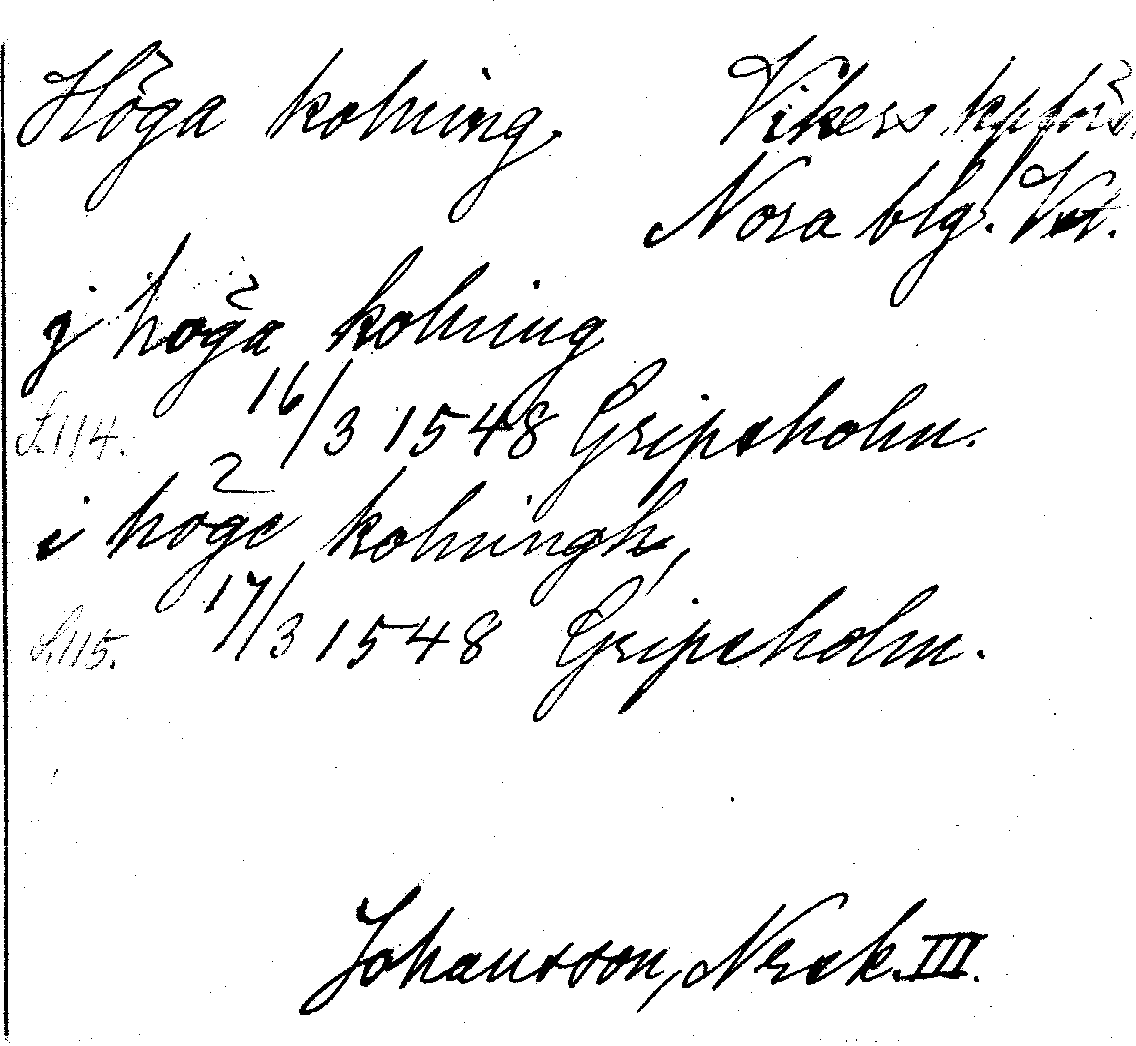 Höga kolning, Vikers kpförs.
Nora blg. Vstm.
j höga kolning
S.114. 16/3 1548 Gripsholm.
i höge kolningh,
S.115. 17/3 1548 Gripsholm.
Johansson, Nrsk. III.